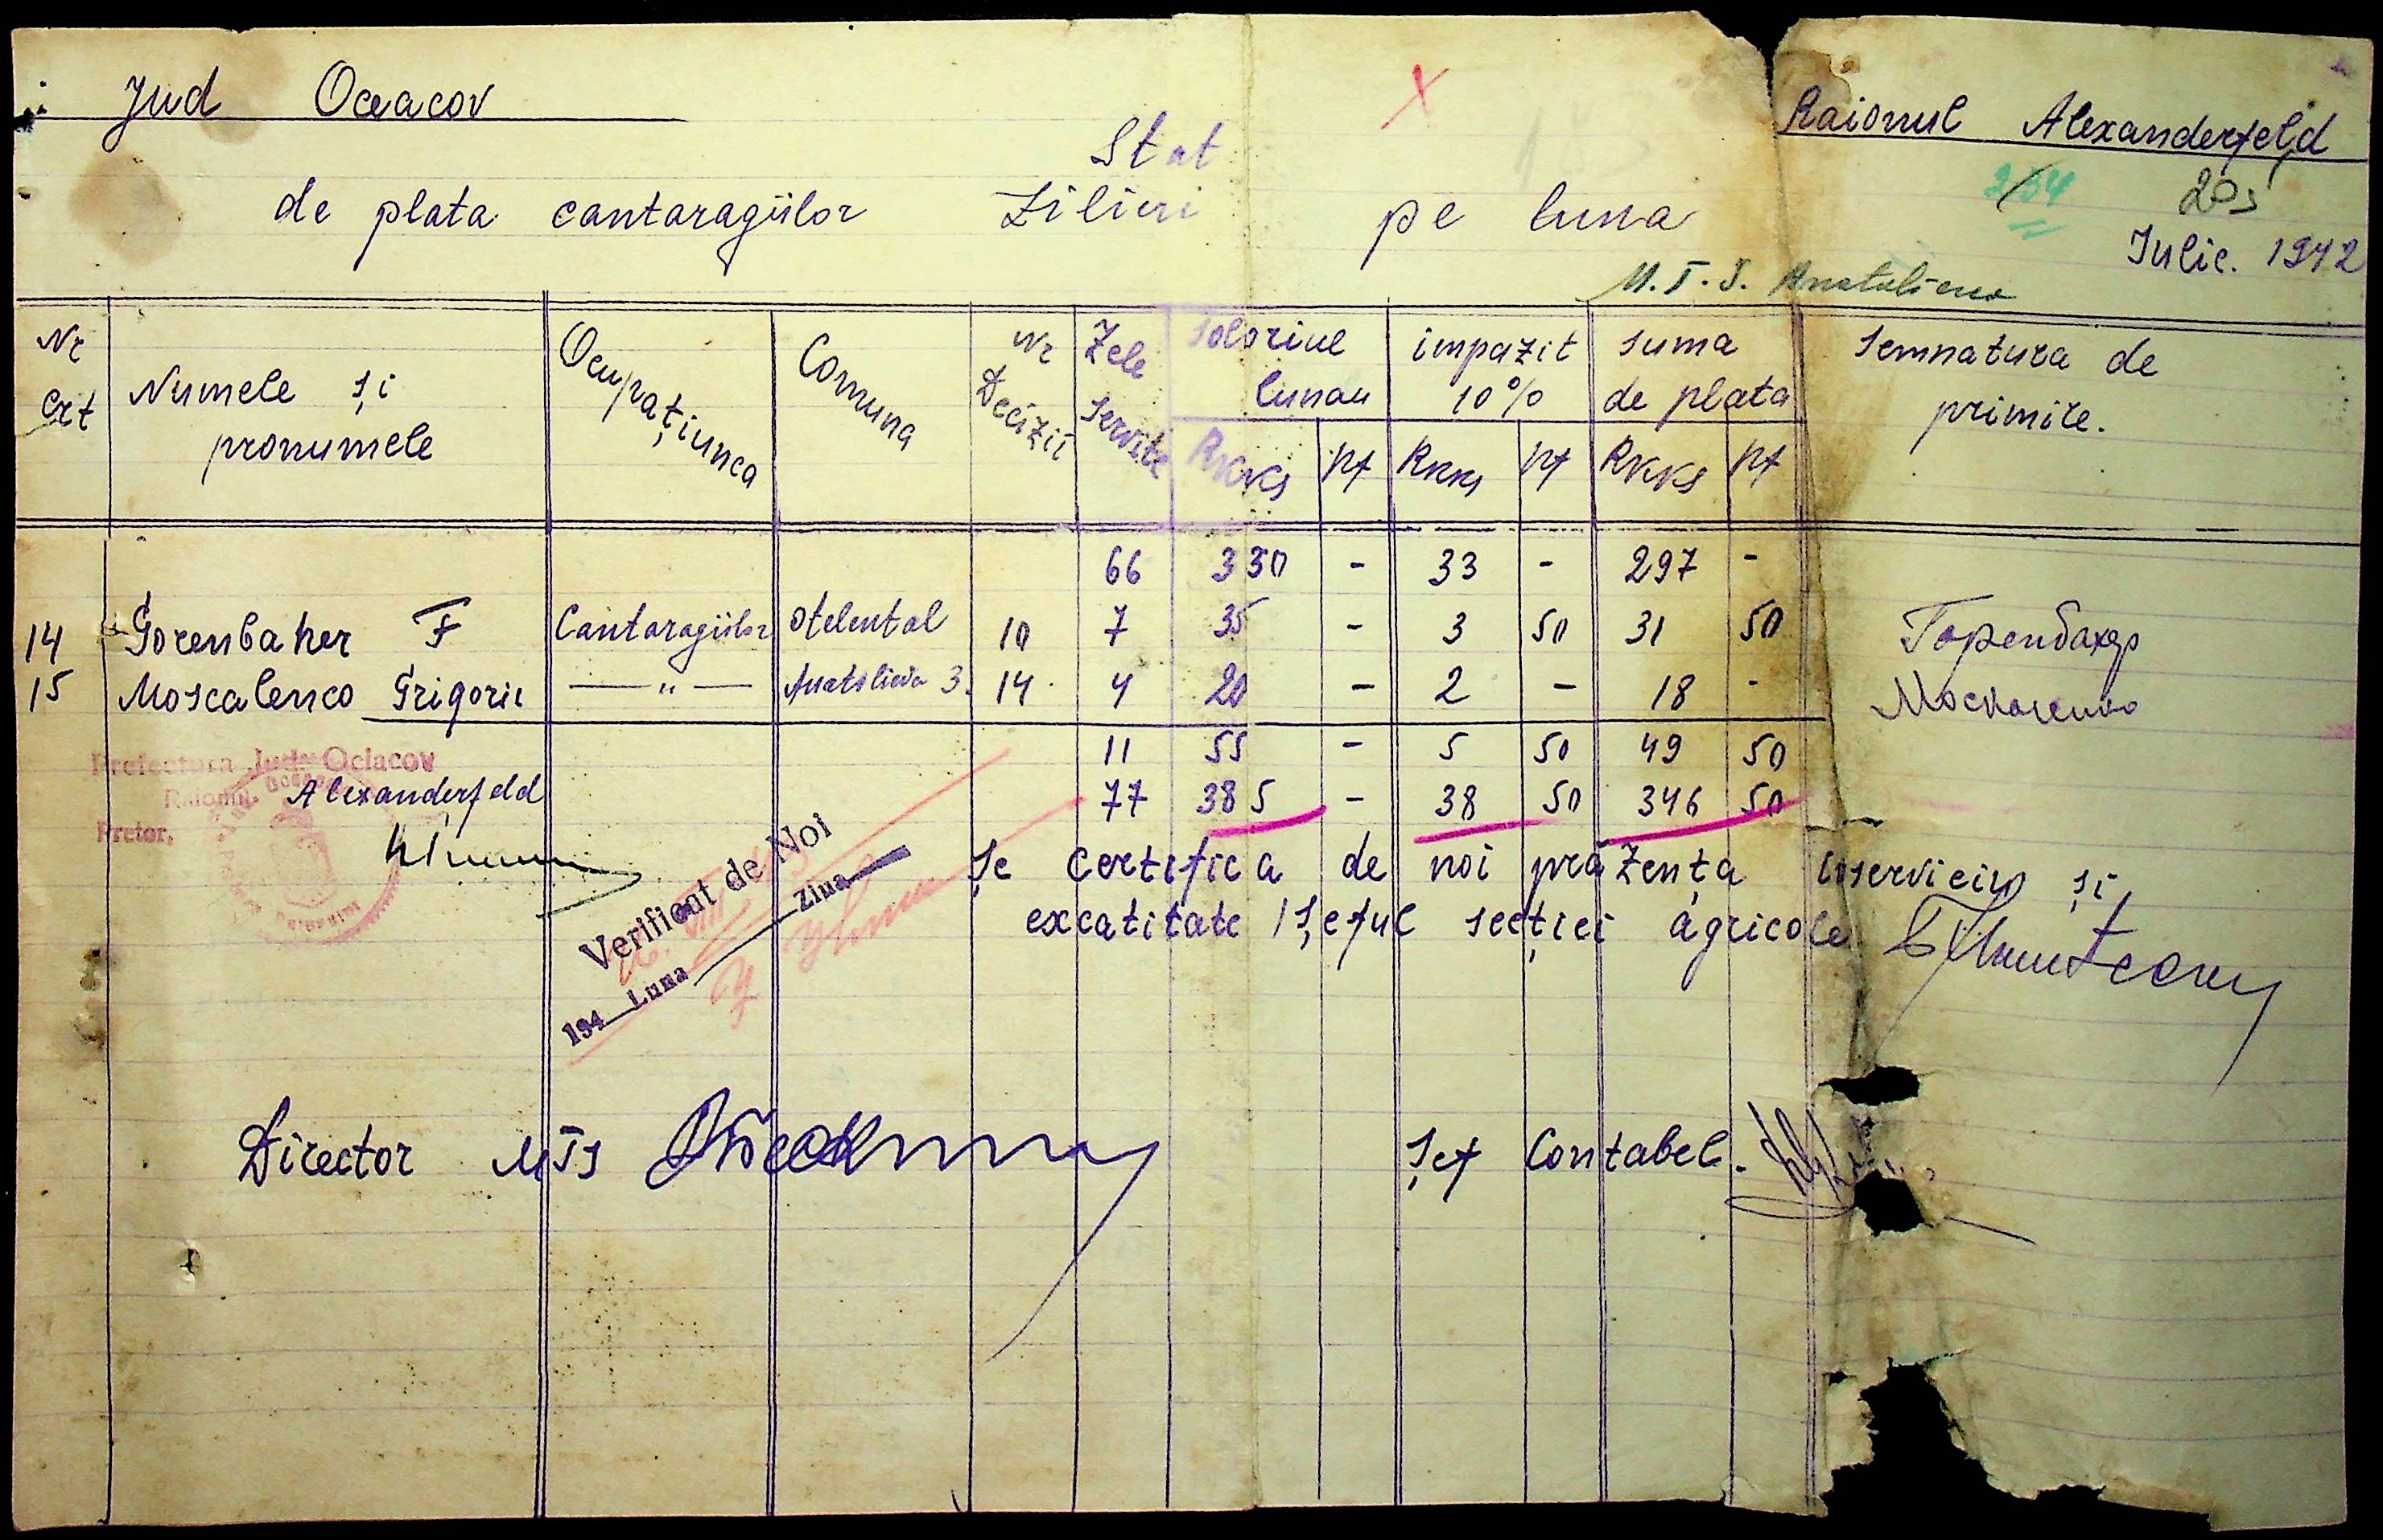 Jud Oceacov
Raionul Alexanderfeld
Stat
254 205
de plata cantaragiilor Zilieri pe luna Iulie. 1942
M.T.S.
Nr Crt Numele și pronumele Ocupațiunea Comuna Nr Decizii Zele servite Solariul lunau impazit 10% suma de plata Semnatura de primire.
Rkks pf Rkks pf Rkks pf
66 330 - 33 - 297 -
14 Gorenbaher F Cantaragiilor Otelental 10 7 35 - 3 50 31 50 Горенбахер
15 Moscalenco Grigorie —"— 3. 14. 4 20 - 2 - 18 - Москаленко
11 55 - 5 50 49 50
77 385 - 38 50 346 50
Prefectura Jud. Ociacov
Raionul Alexanderfeld
Pretor,
Verificat de Noi
194 Luna Ziua
Se certifica de noi prazența inserviciu și
excatitate / Șeful secției agricole
Director MTS
Șef Contabel.